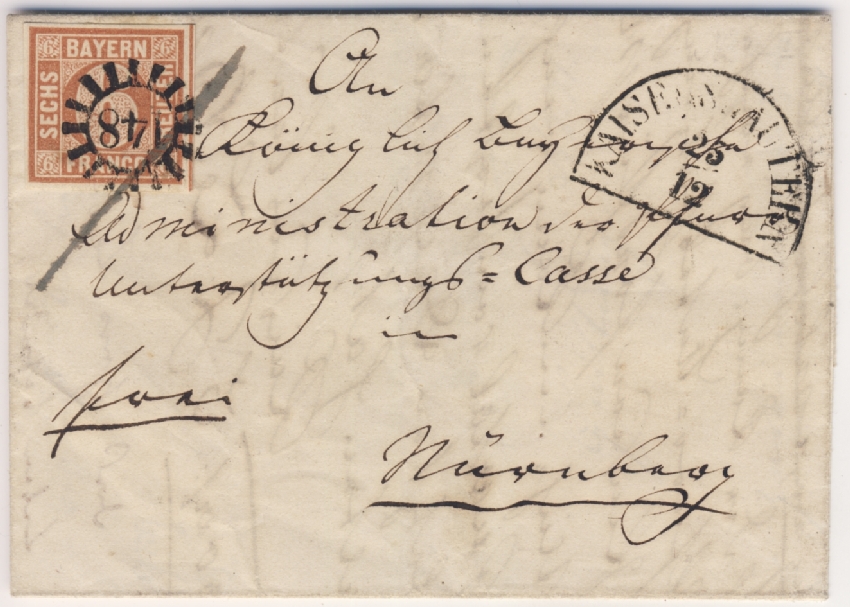 BAYERN
SECHS
FRANCO
6 6 6
148
KAISERSLAUTERN
25
12
An
Königlich Bayerische
Administration der Pfarr
Unterstützungs=Casse
in
frei
Nürnberg